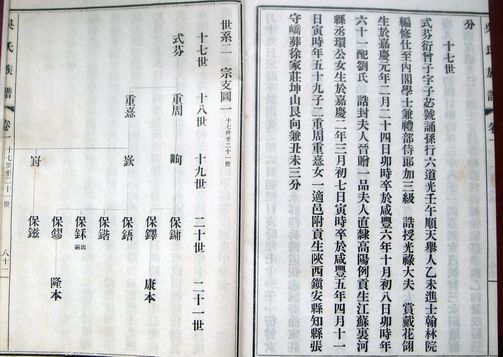 吳氏族譜 卷
分
十七世
式芬衍曾子字子苾號誦孫行六道光壬午順天舉人乙未進士翰林院
編修仕至內閣學士兼禮部侍郎加三級 誥授光祿大夫 賞戴花翎
生於嘉慶元年二月二十四日卯時卒於咸豐六年十月初八日卯時年
六十一配劉氏 誥封夫人晉贈一品夫人直隸高陽例貢生江蘇裏河
縣丞環公女生於嘉慶二年三月初七日寅時卒於咸豐五年四月十一
日寅時年五十九子二重周重熹女一適邑附貢生陝西鎮安縣知縣張
守嶠葬徐家莊坤山艮向兼丑未三分
世系二 宗支圖一 十七世至二十一世
十七世 十八世 十九世 二十世 二十一世
式芬 重周 峋 保鏞
保鐸 康本
重熹 保鋙
保鍇
出嗣
保鏐 隆本
保鎡
吳氏族譜 卷一 十七世至二十一世 八十一